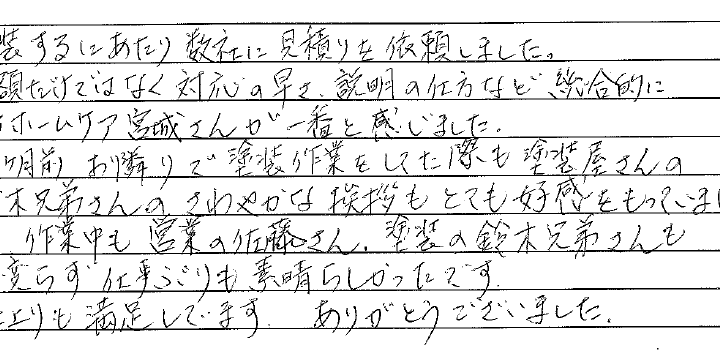 装するにあたり数社に見積りを依頼しました。
額だけではなく対応の早さ、説明の仕方など総合的に
ホームケア宮城さんが一番と感じました。
ヶ月前お隣りで塗装作業をしてた際も塗装屋さんの
木兄弟さんのさわやかな挨拶もとても好感をもっていまし
作業中も営業の佐藤さん、塗装の鈴木兄弟さんも
変らず仕事ぶりも素晴らしかったです。
上りも満足してます。ありがとうございました。